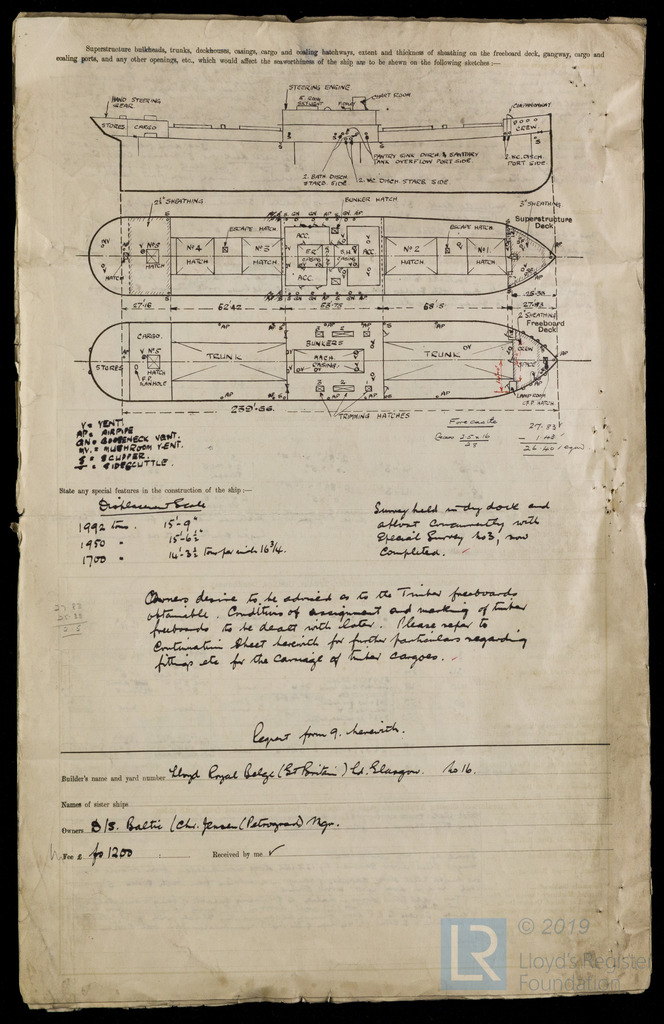 Superstructure bulkheads, trunks, deckhouses, casings, cargo and coaling hatchways, extent and thickness of sheathing on the freeboard deck, gangway, cargo and
coaling ports, and any other openings, etc., which would affect the seaworthiness of the ship are to be shewn on the following sketches :—
STEERING ENGINE
CHART ROOM
HAND STEERING
GEAR
STORES
CARGO
CREW
PANTRY SINK DISCH & SANITARY
TANK OVERFLOW PORT SIDE.
2. BATH DISCH
STARB. SIDE.
2. W.C. DISCH. STARB SIDE.
2. W.C. DISCH.
PORT SIDE.
2½" SHEATHING
BUNKER HATCH
3" SHEATHING
Superstructure
Deck
ESCAPE HATCH
ESCAPE HATCH
No 5
HATCH
No 4
HATCH
No 3
HATCH
ACC.
ACC.
ACC.
E.R.
CASING
No 2
HATCH
No 1
HATCH
27·16
62·42
53·75
68·5
25·33
27·83
2" SHEATHING
Freeboard
Deck
STORES
CARGO.
No 5
HATCH
F.P.
MANHOLE
TRUNK
BUNKERS
MACH.
CASING.
TRUNK
CREW
SPACE
LAMP ROOM
F.P. HATCH
239'·66.
TRIMMING HATCHES
V = VENT.
AP = AIRPIPE
GN = GOOSENECK VENT.
MV. = MUSHROOM VENT.
S = SCUPPER.
= SIDESCUTTLE.
Forecastle
2.5 x 16
28
27·83
- 1·43
26·40
State any special features in the construction of the ship :—
Displacement Scale
1992 tons. 15'-9"
1950 " 15'-6½"
1700 " 14'-3½ tons per inch 16¾.
Survey held in dry dock and
afloat concurrently with
Special Survey No 3, now
completed.
Owners desire to be advised as to the Timber freeboards
obtainable. Conditions of assignment and marking of timber
freeboards to be dealt with later. Please refer to
Continuation Sheet herewith for further particulars regarding
fittings etc for the carriage of timber cargoes.
27.83
25.33
2.5
Report form 9. herewith.
Builder's name and yard number Lloyd Royal Belge (Gt Britain) Ld. Glasgow. No 16.
Names of sister ships
Owners D/S. Baltic (Chr. Jensen (Petrograd) Mgr.
Fee £ 1200 Received by me
LR
© 2019
Lloyd's Register
Foundation